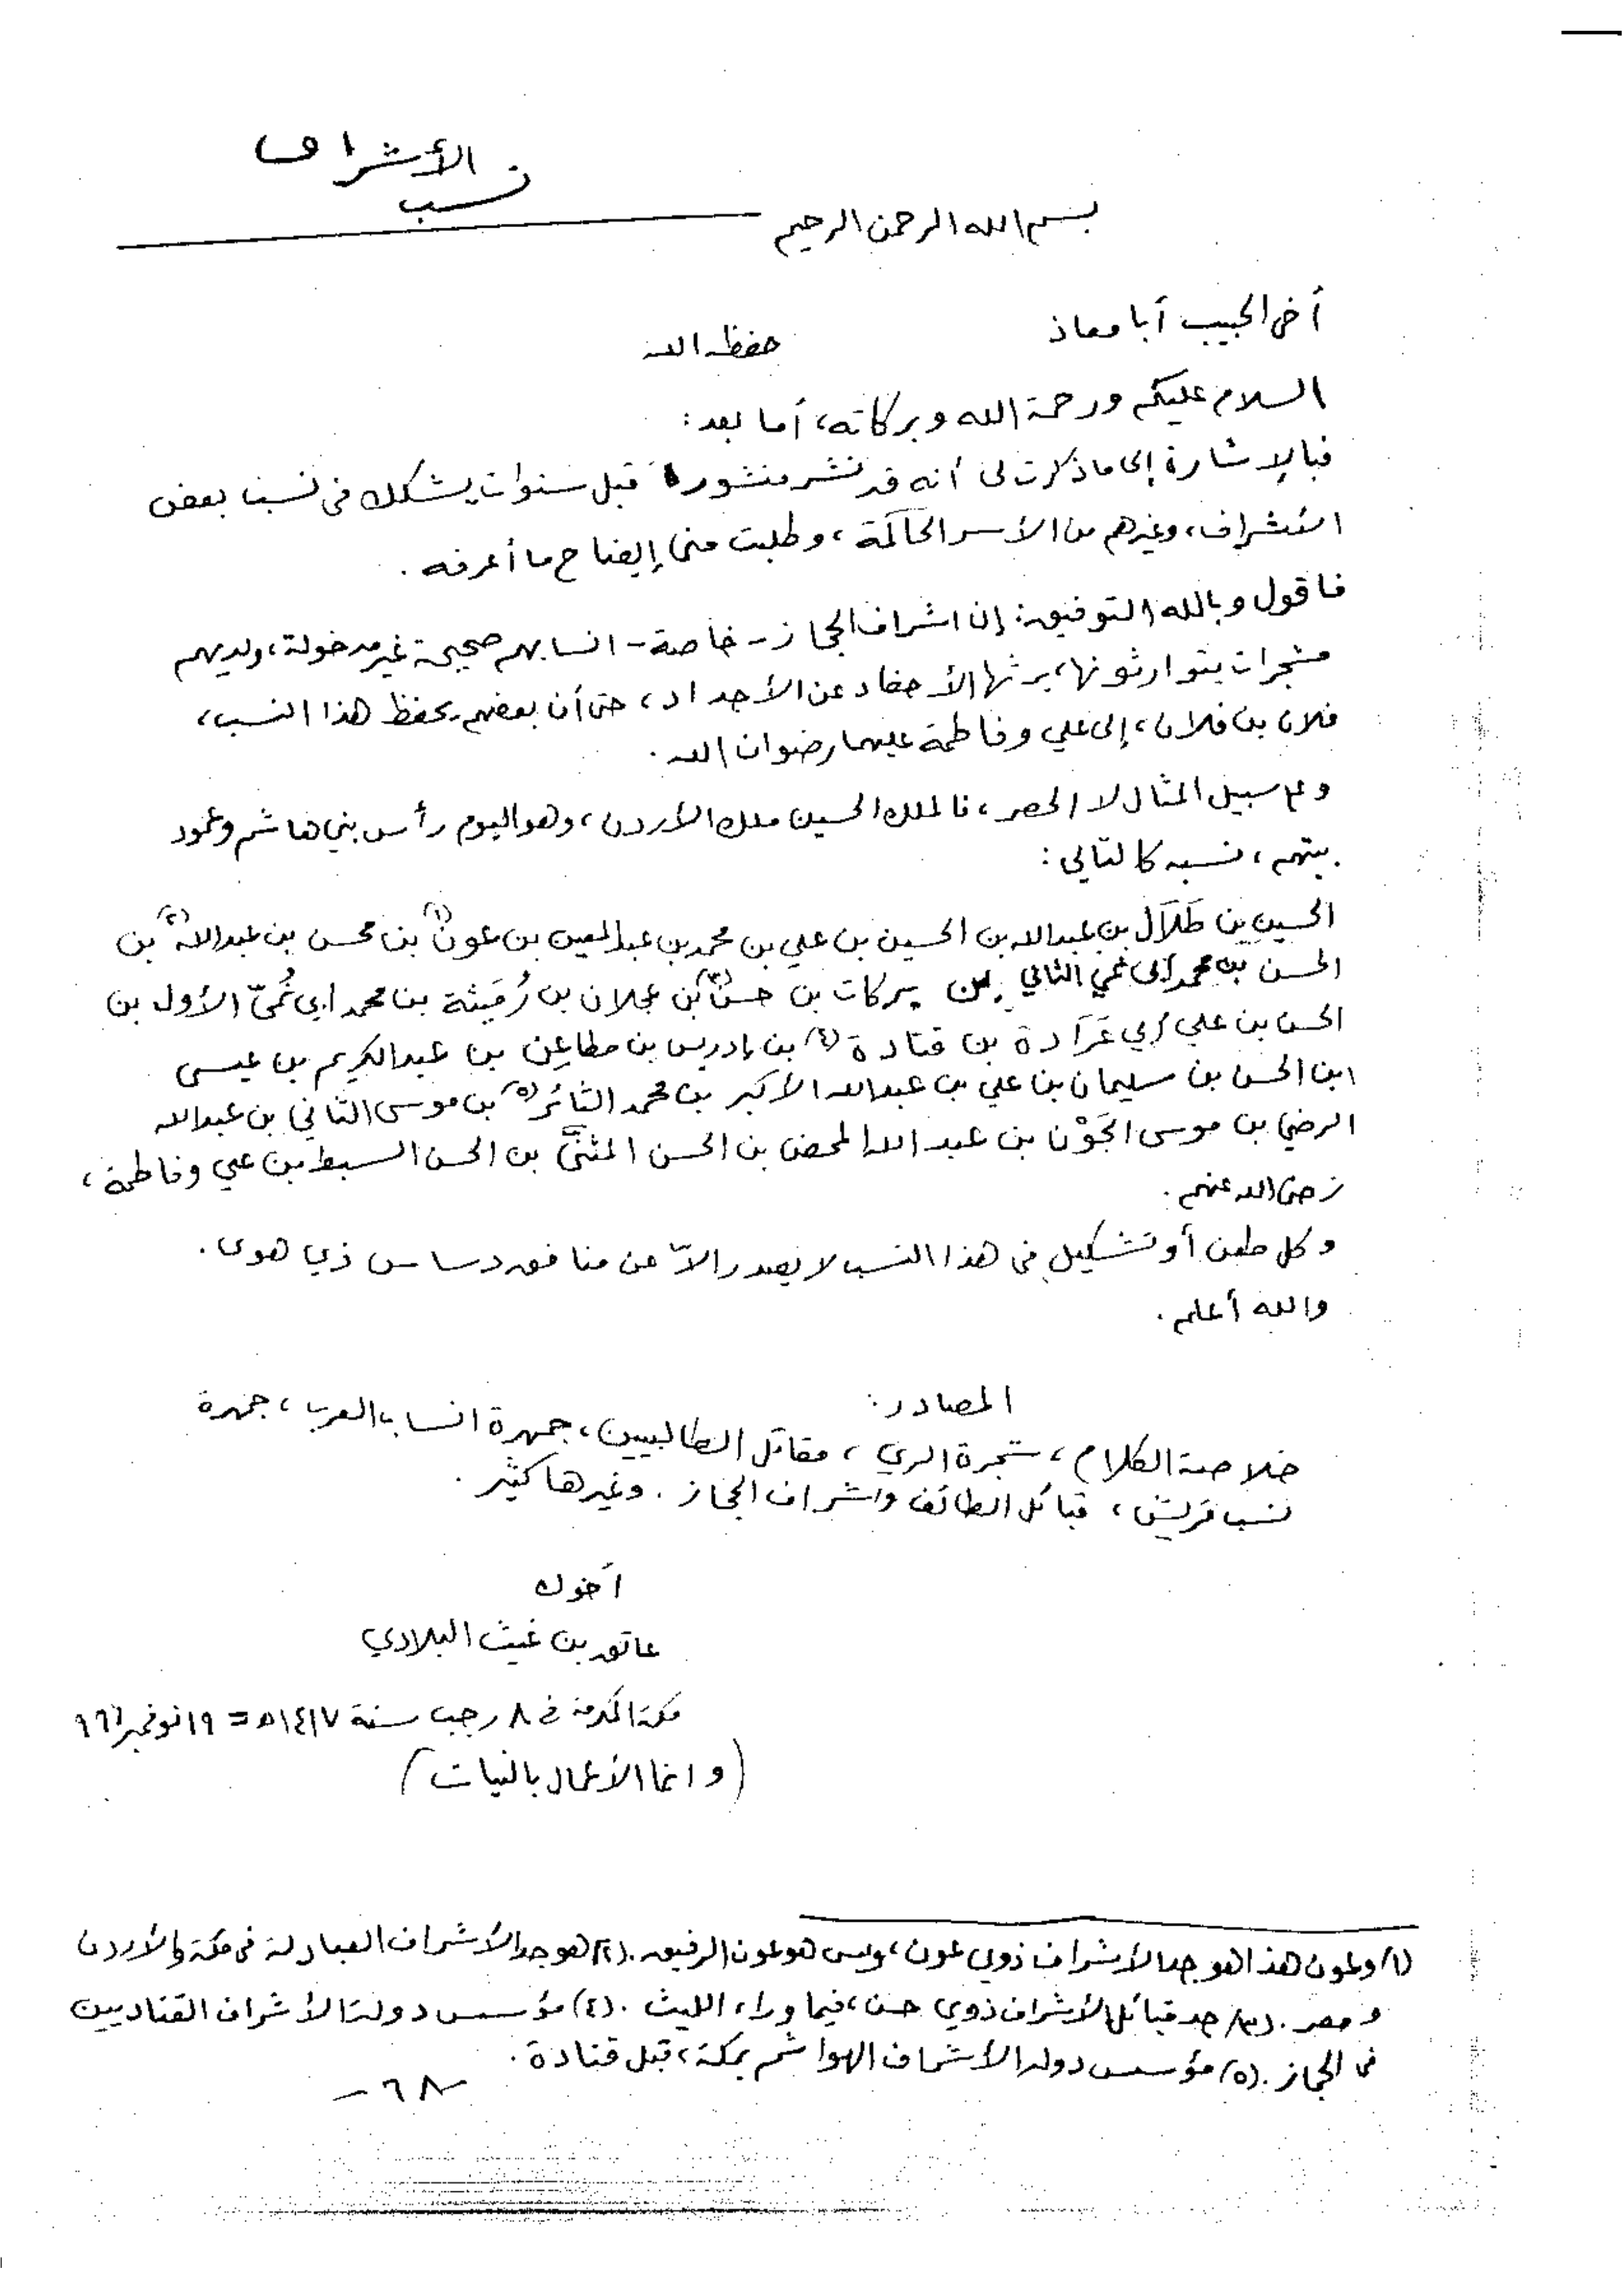 نسب الأشراف
بسم الله الرحمن الرحيم
أخي الحبيب أبا معاذ حفظه الله
السلام عليكم ورحمة الله وبركاته، أما بعد:
فبالإشارة إلى ما ذكرت لي أنه قد نشر منشورا قبل سنوات يشكك في نسب بعض
الأشراف، وغيرهم من الأسر الحاكمة، وطلبت مني إيضاح ما أعرفه.
فاقول وبالله التوفيق: إن اشراف الحجاز - خاصة - انسابهم صحيحة غير مدخولة، ولديهم
مشجرات يتوارثونها، يرثها الأحفاد عن الأجداد، حتى أن بعضهم يحفظ هذا النسب،
فلان بن فلان، إلى علي وفاطمة عليهما رضوان الله.
وعلى سبيل المثال لا الحصر، فالملك الحسين ملك الأردن، وهو اليوم رأس بني هاشم وعمود
بيتهم، نسبه كالتالي:
الحسين بن طَلَال بن عبدالله بن الحسين بن علي بن محمد بن عبدالمعين بن عون(١) بن محسن بن عبدالله(٢) بن
الحسن بن محمد أبى نمي الثاني بن بركات بن حسن(٣) بن عجلان بن رُمَيثة بن محمد ابي نُمَيّ الأول بن
الحسن بن علي بن قتادة(٤) بن إدريس بن مطاعِن بن عبدالكريم بن عيسى
ابن الحسن بن سليمان بن علي بن عبدالله الأكبر بن محمد الثائر(٥) بن موسى الثاني بن عبدالله
الرضي بن موسى الجَوْن بن عبدالله المحض بن الحسن المثنَّى بن الحسن السبط بن علي وفاطمة،
رضي الله عنهم.
وكل طعن أو تشكيك في هذا النسب لا يصدر الاّ عن منافق دساس ذي هوى.
والله أعلم.
المصادر:
خلاصة الكلام، شجرة الري، مقاتل الطالبيين، جمهرة انساب العرب، جمهرة
نسب قريش، قبائل الطائف واشراف الحجاز. وغيرها كثير.
أخوك
عاتق بن غيث البلادي
مكة المكرمة في ٨ رجب سنة ١٤١٧هـ = ١٩ نوفمبر
(وانما الأعمال بالنيات)
(١) وعون هذا هو جد الأشراف ذوي عون، وليس هو عون الرفيق. (٢) هو جد الأشراف العبادلة في مكة والأردن
ومصر. (٣) جد قبائل الأشراف ذوي حسن، فيما وراء الليث. (٤) مؤسس دولة الأشراف القتاديين
في الحجاز. (٥) مؤسس دولة الأشراف الهواشم بمكة، قبل قتادة.
-٦٨-